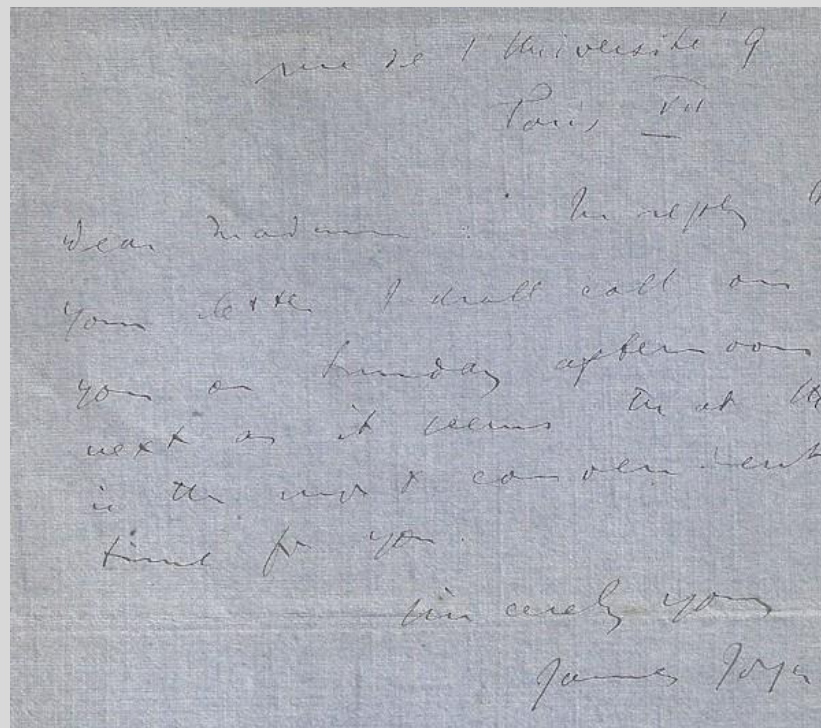 rue de l'Université 9
Paris VII
Dear Madam : In reply
your letter I shall call on
you on Sunday afternoon
next as it seems that
is the most convenient
time for you.
Sincerely yours
James Joyce